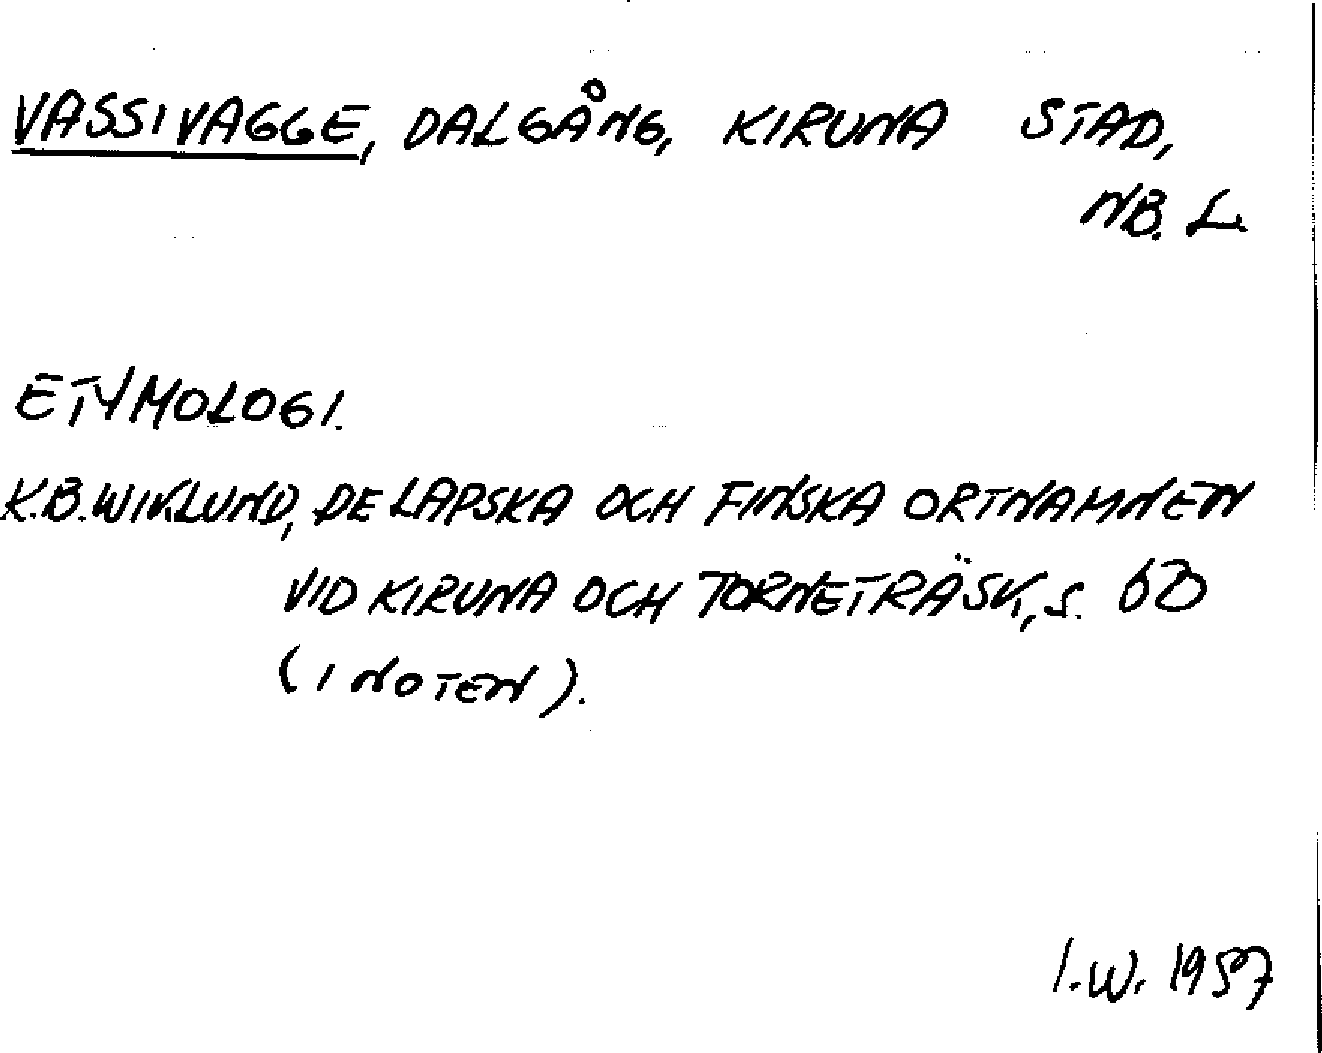 VASSIVAGGE, DALGÅNG, KIRUNA STAD,
NB. L.
ETYMOLOGI.
K.B. WIKLUND, DE LAPSKA OCH FINSKA ORTNAMNEN
VID KIRUNA OCH TORNETRÄSK, S. 60
(I NOTEN).
I.W. 1957